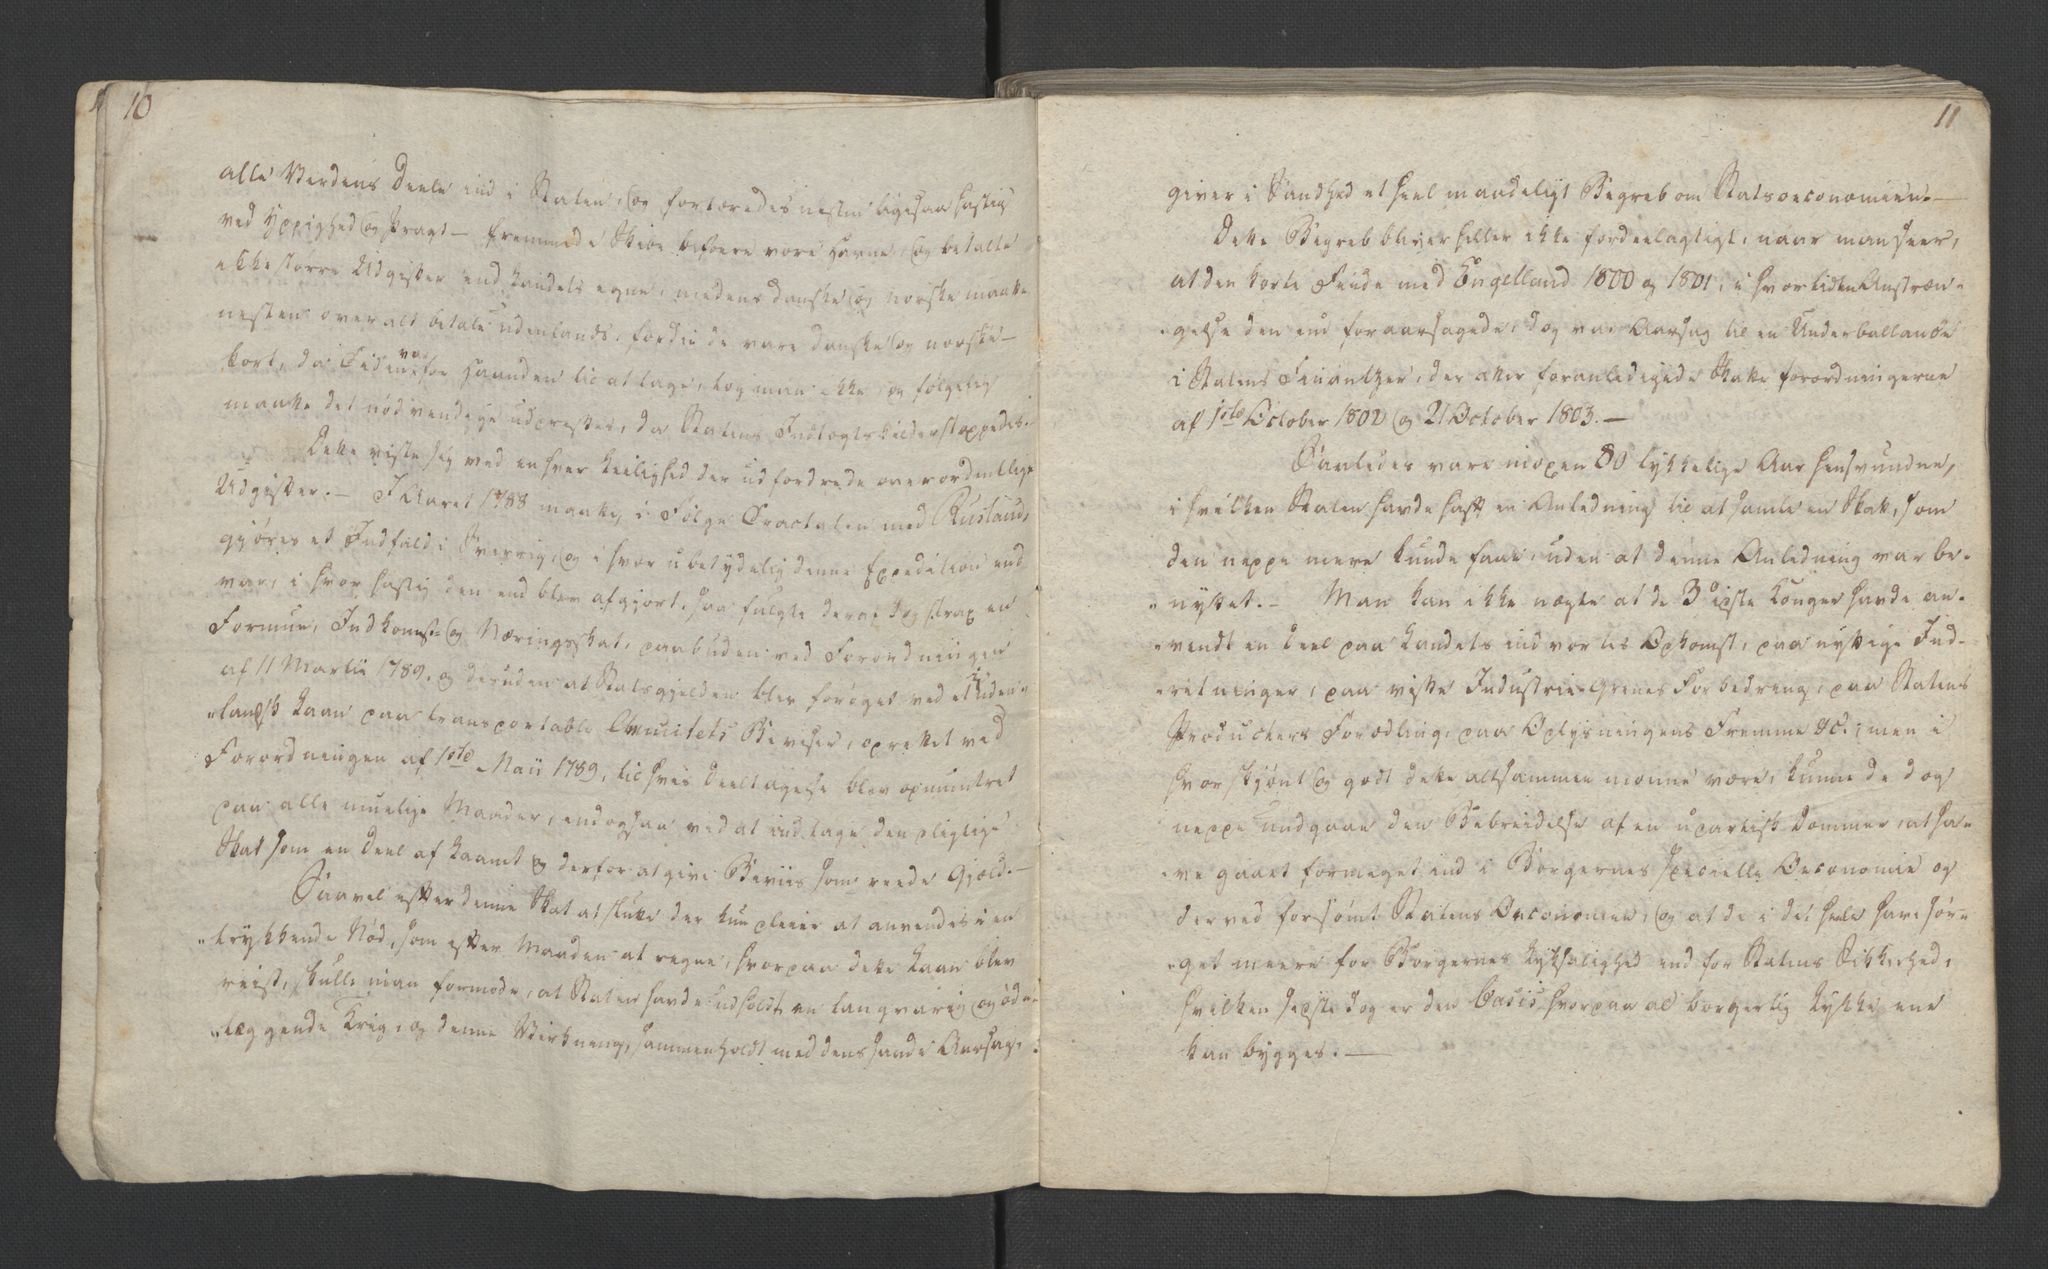 10
alle Verdens Deele ind i Staten, og fortæredes nesten ligesaa hastig
ved Yppighed og Pragt — fremmede Skibe befoere vore Havne, og betalte
ikke større Udgifter end Landets egne, medens danske og norske maatte
nesten overalt betale udenlands, fordi de vare danske og norske —
kort, da Tiden var for Haanden til at tage, tog man ikke, og følgelig
maatte det nødvendige udpresses, da Statens Indtægtskilder stoppedes.
Dette viste sig ved en hver Leilighed der udfordrede overordentlige
Udgifter. — I Aaret 1788 maatte, i Følge Tractaten med Rusland,
gjøres et Indfald i Sverrig, og i hvor ubetydelig denne Expedition end
var, i hvor hastig den end blev afgjort, saa fulgte deraf dog strax en
Formue, Indkomst og Næringsskat, paabuden ved Forordningen
af 11 Martii 1789, og desuden at Statsgjelden blev forøget ved et uden-
"landsk Laan paa transportable Annuitets Beviser, oprettet ved
Forordningen af 1ste Maii 1789, til hvis Deeltagelse blev opmuntret
paa alle muelige Maader, endogsaa ved at indtage den pligtige
Skat som en Deel af Laanet og derfor at give Beviis som reede Gjæld. —
Saavel efter denne Skat at slutte der kun pleier at anvendes i en
"trykkende Nød, som efter Maaden at regne, hvorpaa dette Laan blev
reist, skulle man formode, at Staten havde udholdt en langvarig og øde-
"læggende Krig, og denne Virkning, sammenholdt med dens sande Aarsag,
11
giver i Sandhed et heel maadeligt Begreb om Statsoeconomien. —
Dette Begreb bliver heller ikke fordeelagtigt, naar man seer,
at den korte Feide med Engelland 1800 og 1801, i hvor liden Anstræn-
"gelse den end foraarsagede, dog var Aarsag til en Underballance
i Statens Finantzer, der atter foranledigede Skatteforordningerne
af 1ste October 1802 og 21 October 1803. —
Saaledes vare mopen 80 lykkelige Aar hensvundne,
i hvilken Staten havde haft en Anledning til at samle en Skat, som
den neppe mere kunde faae, uden at denne Anledning var be-
"nyttet. — Man kan ikke nægte at de 3de sidste Konger havde an-
"vendt en Deel paa Landets indvortes Opkomst, paa nyttige Ind-
"retninger, paa visse Industrie-Grenes Forbedring, paa Statens
Producters Forædling, paa Oplysningens Fremme &c.; men i
hvor skjønt og godt dette altsammen monne være, kunne de dog
neppe undgaae den Bebreidelse af en upartisk Dommer, at ha-
"ve gaaet formeget ind i Borgernes specielle Oeconomie og
derved forsømt Statens Oeconomie, og at de i det heele have sør-
"get meere for Borgernes Lyksalighed end for Statens Sikkerhed,
hvilken sidste dog er den Basis hvorpaa al borgerlig Lykke ene
kan bygges. —